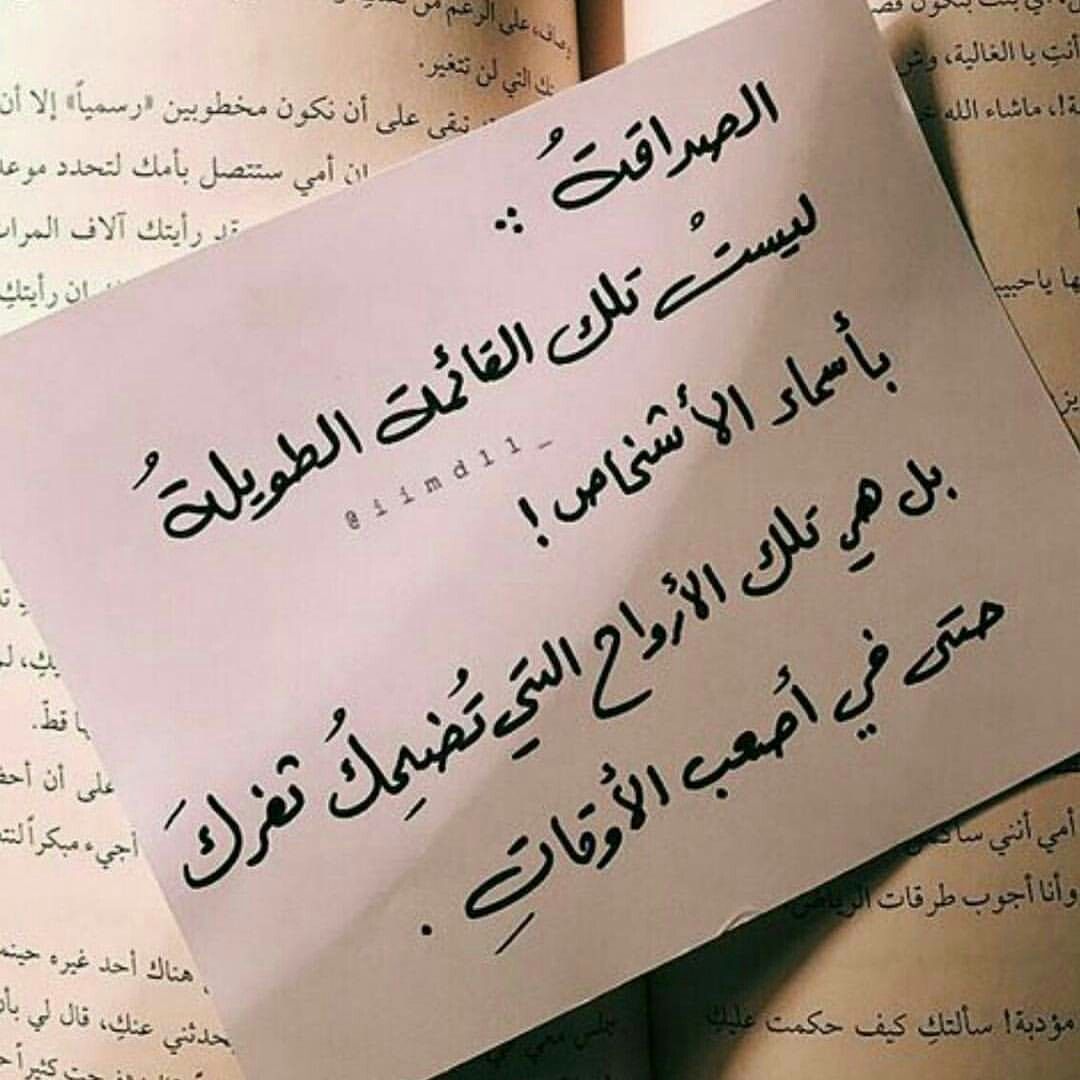 الصداقةُ :
ليستْ تلك القائمة الطويلةُ
بأسماء الأشخاص !
بل هي تلك الأرواح التي تُضحِكُ ثغركَ
حتى في أصعب الأوقاتِ .
@iimd11_
نك التي لن تتغير.
تبقى على أن نكون مخطوبين «رسمياً» إلا أن
إن أمي ستتصل بأمك لتحدد موعد
قد رأيتك آلاف المرات
إن رأيتكِ
أنتِ يا الغالية،
ماشاء الله
ها ياحبيبي
ها قطّ.
على أن
أجيء مبكراً
هناك أحد غيره حينما
يحدثني عنكِ، قال لي
أمي أنني
وأنا أجوب طرقات الرياض
مؤدبة! سألتكِ كيف حكمت عليكِ